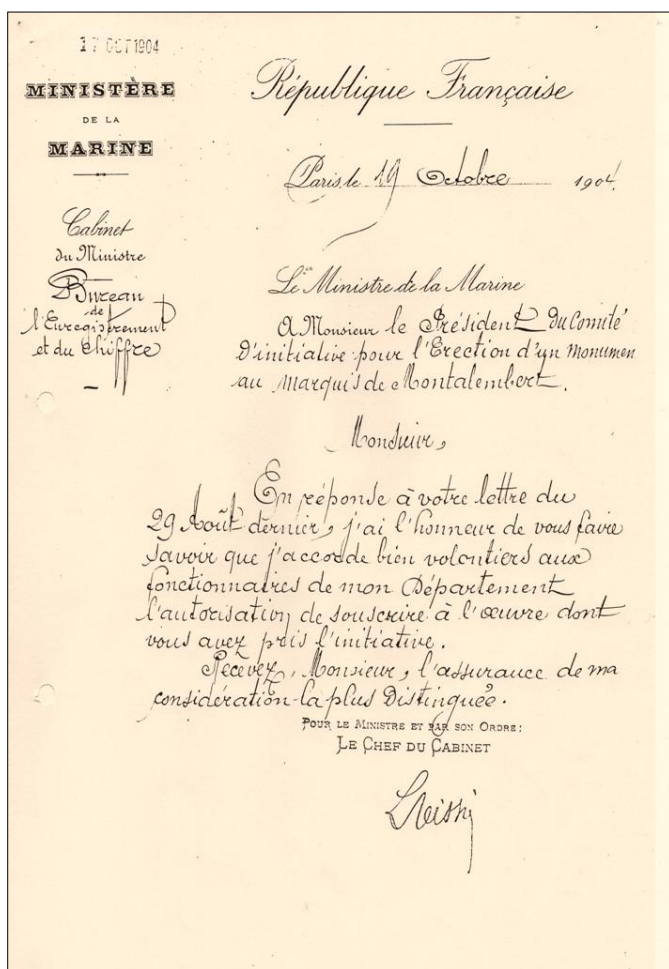 17 OCT 1904
MINISTÈRE
DE LA
MARINE
République Française
Paris, le 19 Octobre 1904.
Cabinet
du Ministre
Bureau
de
l'Enregistrement
et du Chiffre
Le Ministre de la Marine
A Monsieur le Président du Comité
D'initiative pour l'Erection d'un monumen
au Marquis de Montalembert.
Monsieur,
En réponse à votre lettre du
29 Août dernier, j'ai l'honneur de vous faire
savoir que j'accorde bien volontiers aux
fonctionnaires de mon Département
l'autorisation de souscrire à l'œuvre dont
vous avez pris l'initiative.
Recevez, Monsieur, l'assurance de ma
considération la plus Distinguée.
POUR LE MINISTRE ET PAR SON ORDRE:
LE CHEF DU CABINET